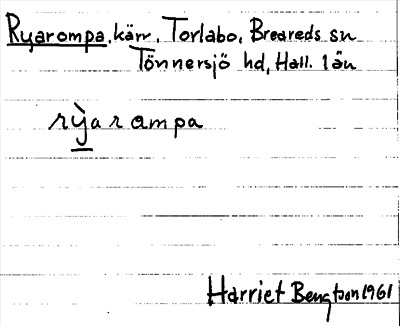 Ryarompa, kärr, Torlabo, Breareds sn
Tönnersjö hd, Hall. län
rỳarampa
Harriet Bengtson 1961